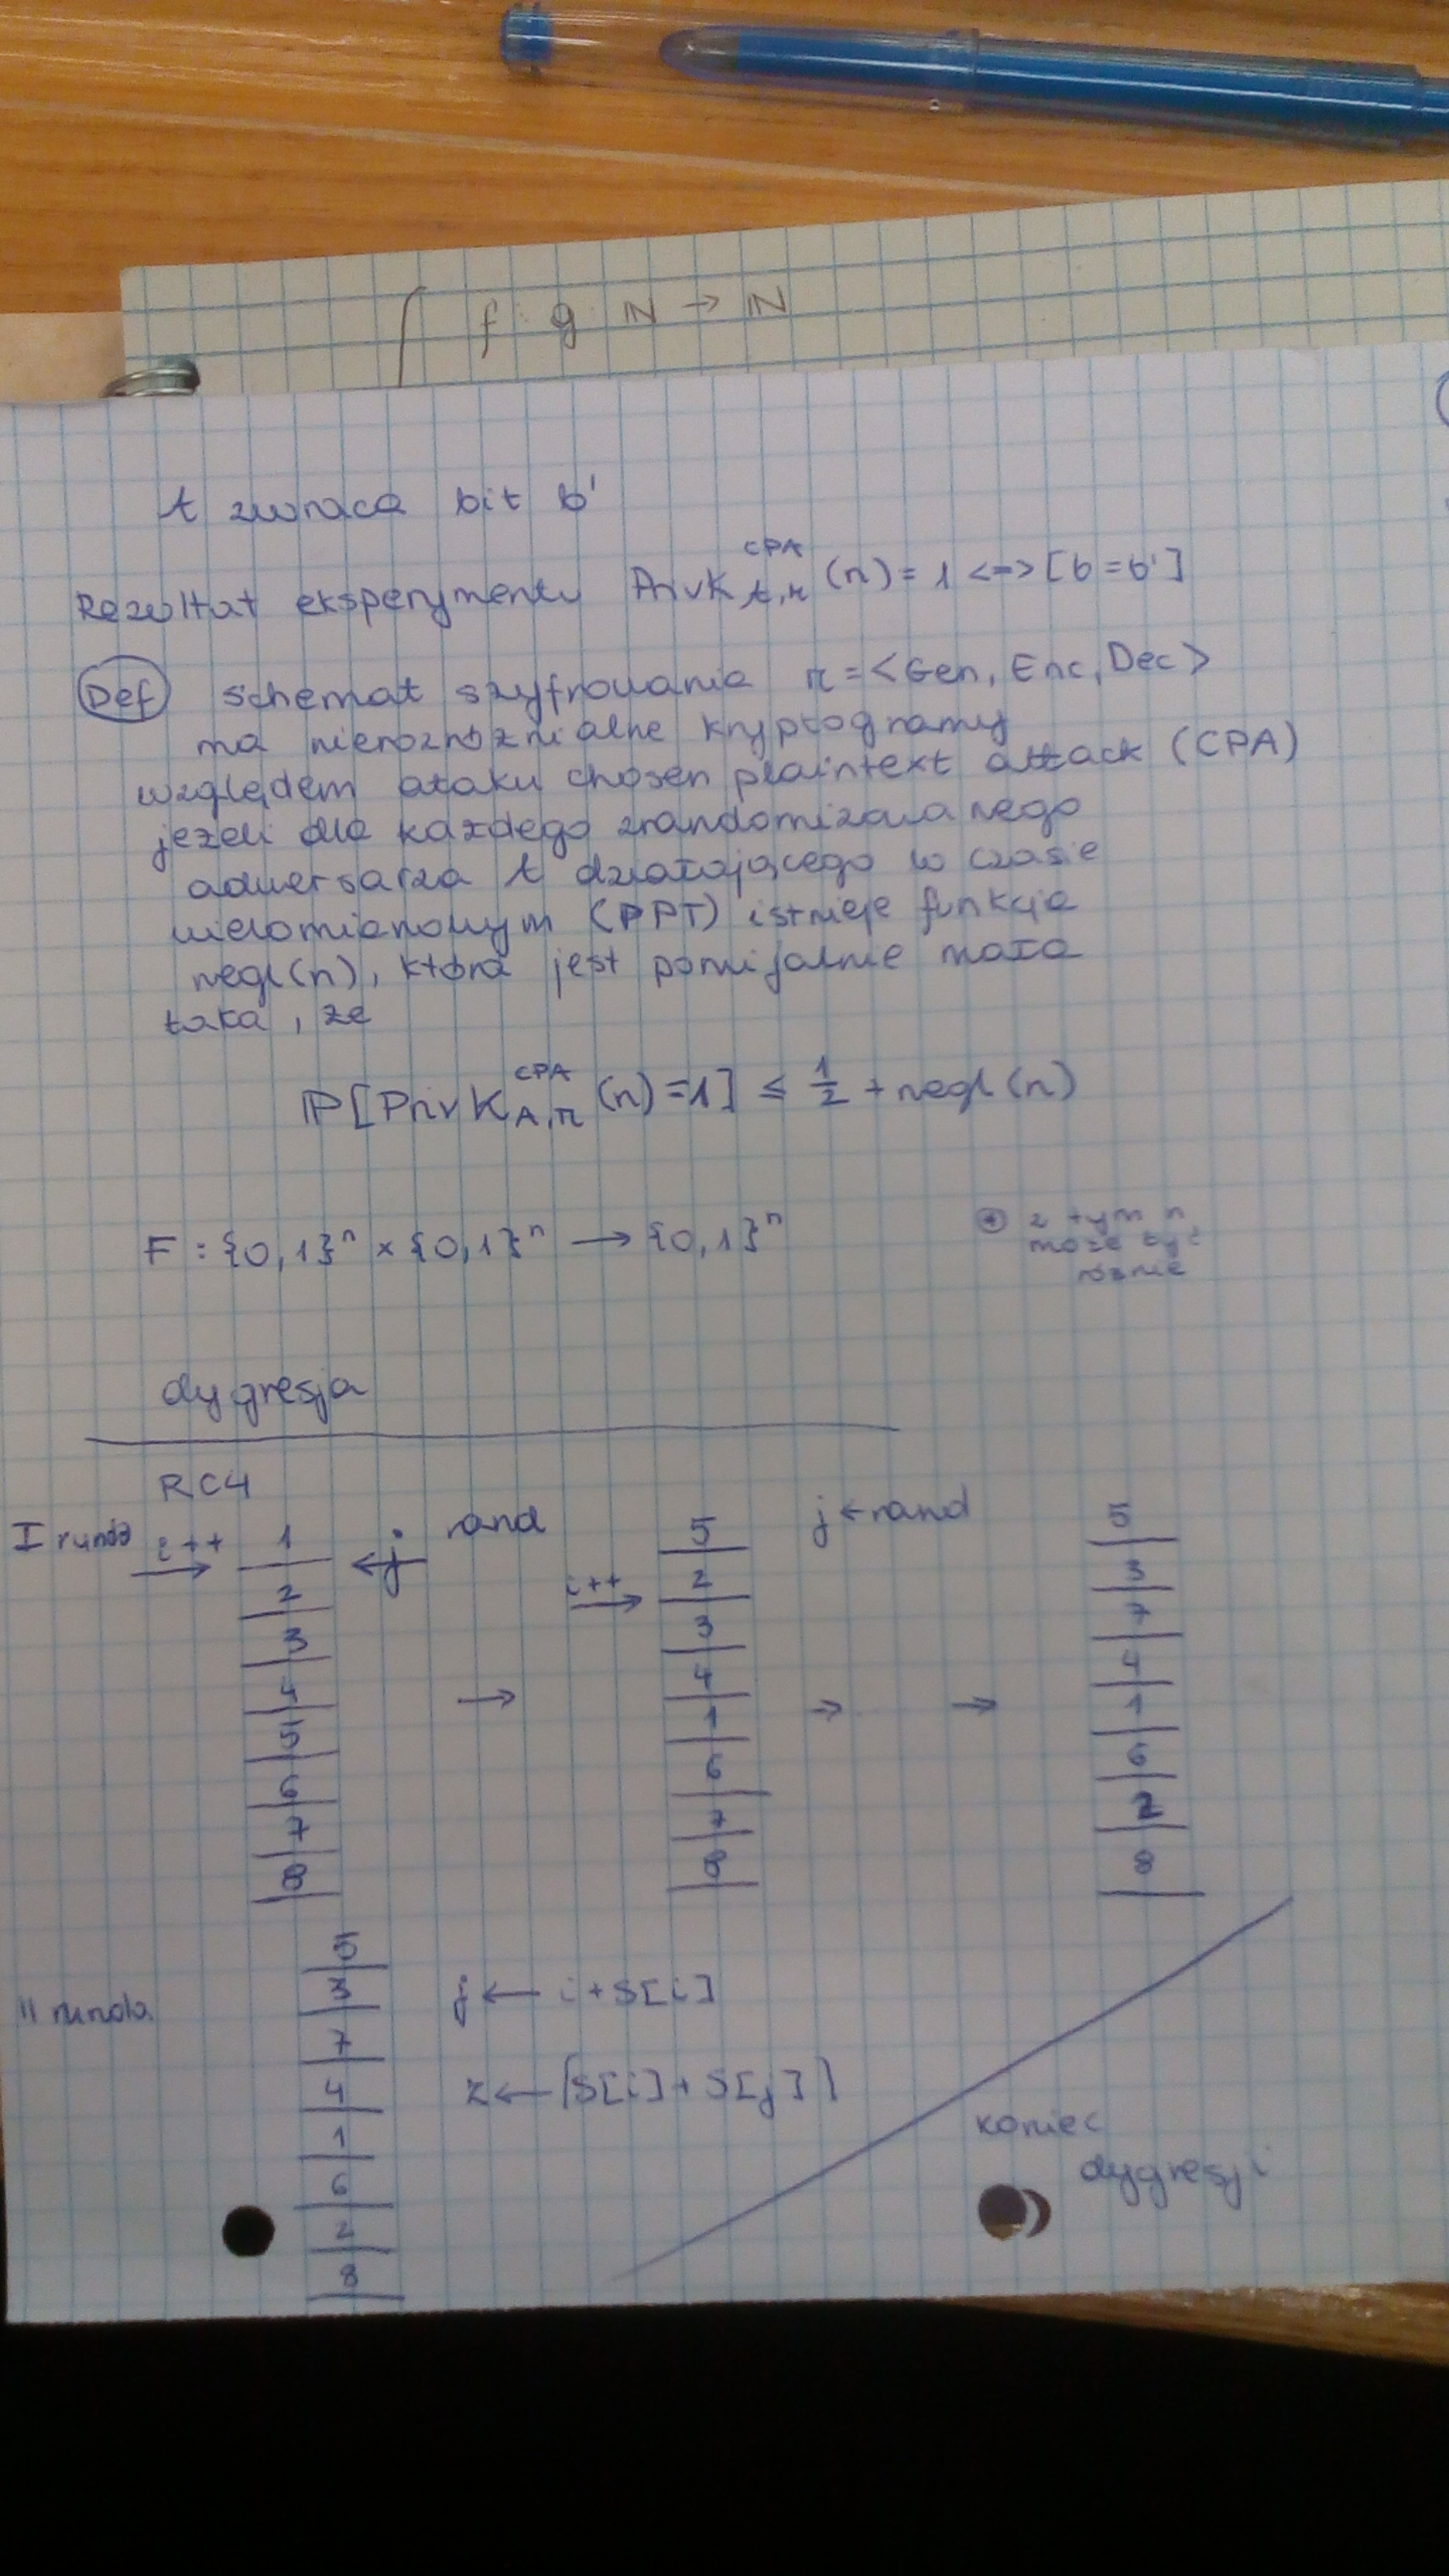 f g ℕ → ℕ
A zwraca bit b'
Rezultat eksperymentu PrivK^CPA_A,π (n) = 1 <=> [b = b']
Def schemat szyfrowania π = <Gen, Enc, Dec>
ma nierozróżnialne kryptogramy
względem ataku chosen plaintext attack (CPA)
jeżeli dla każdego zrandomizowanego
adwersarza A działającego w czasie
wielomianowym (PPT) istnieje funkcja
negl(n), która jest pomijalnie mała
taka, że
ℙ[PrivK^CPA_A,π (n) = 1] ≤ 1/2 + negl(n)
F : {0,1}^n × {0,1}^n → {0,1}^n
* z tym n
może być
różnie
dygresja
RC4
I runda i++ → 1 ← j rand
2
3
4
5
6
7
8
→
i++ →
5
2
3
4
1
6
7
8
j ← rand
→ →
5
3
7
4
1
6
2
8
II runda
5
3
7
4
1
6
2
8
j ← i + S[i]
z ← [S[i] + S[j]]
koniec
dygresji